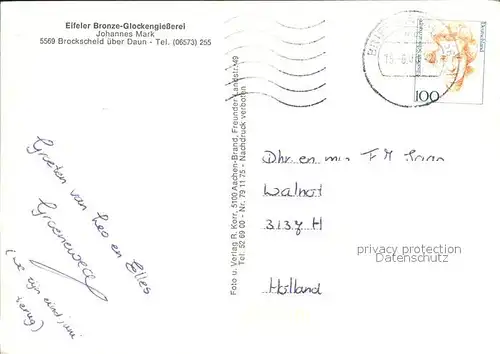 Eifeler Bronze-Glockengießerei
Johannes Mark
5569 Brockscheid über Daun - Tel. (06573) 255
Deutschland
100
Foto u. Verlag R. Korr, 5100 Aachen-Brand, Freunder Landstr. 49
Tel. 52 69 00 - Nr. 79 11 75 - Nachdruck verboten
Groeten van Leo en Elles
Groeneweg
(we zijn eind juni
terug)
Dhr en mw
Walnot
3137 H
Holland
privacy protection
Datenschutz